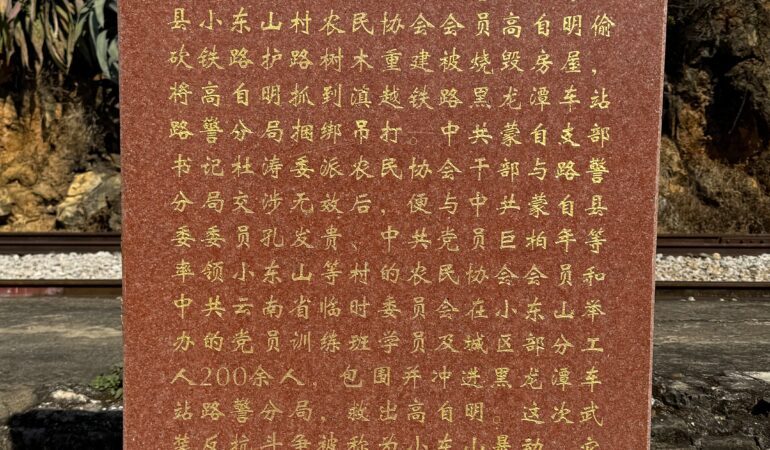 县小东山村农民协会会员高自明偷
砍铁路护路树木重建被烧毁房屋，
将高自明抓到滇越铁路黑龙潭车站
路警分局捆绑吊打。中共蒙自支部
书记杜涛委派农民协会干部与路警
分局交涉无效后，便与中共蒙自县
委委员孔发贵、中共党员巨柏年等
率领小东山等村的农民协会会员和
中共云南省临时委员会在小东山举
办的党员训练班学员及城区部分工
人200余人，包围并冲进黑龙潭车
站路警分局，救出高自明。这次武
装反抗斗争被称为小东山暴动